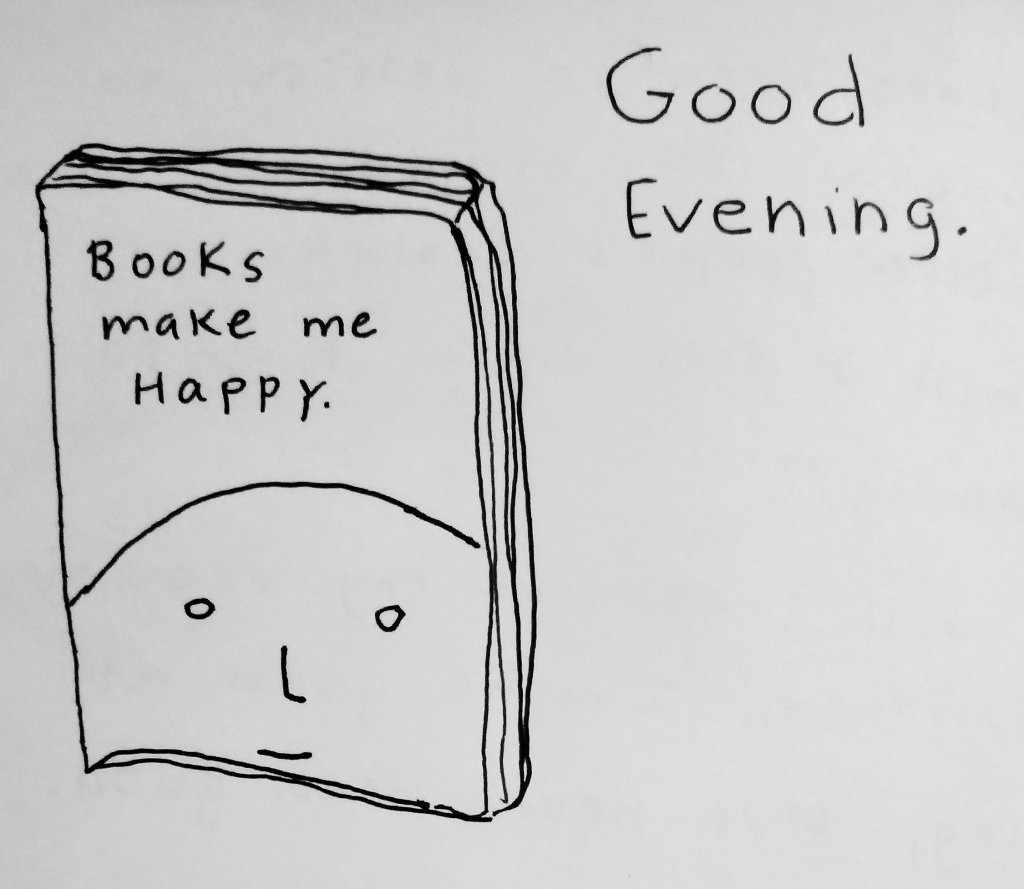 Good
Evening.
Books
make me
Happy.